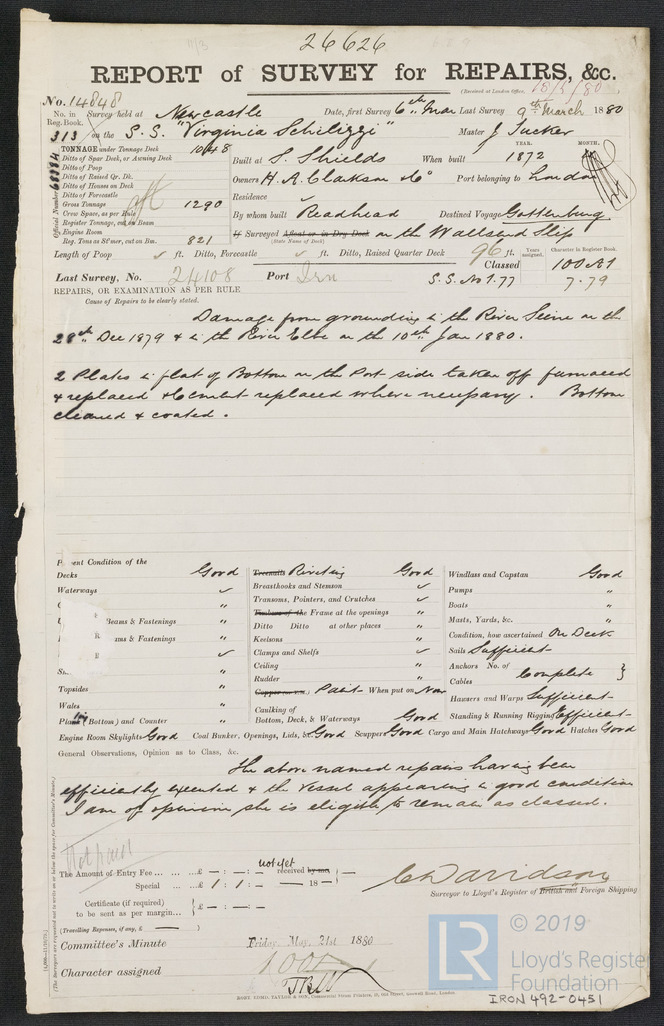 26626
REPORT of SURVEY for REPAIRS, &c.
(Received at London Office,
No. 14848
No. in Reg. Book. Survey held at Newcastle Date, first Survey 6th Mar Last Survey 9th March 1880
313 on the S.S. "Virginia Schilizzi" Master J Tucker
TONNAGE under Tonnage Deck 1048
Ditto of Spar Deck, or Awning Deck
Ditto of Poop
Ditto of Raised Qr. Dk.
Ditto of Houses on Deck
Ditto of Forecastle
Gross Tonnage 1290
Crew Space, as per Rule
Register Tonnage, cut on Beam
Engine Room
Reg. Tons as Stmer, cut on Bm. 821
Official Number
YEAR. MONTH.
Built at S. Shields When built 1872
Owners H. A. Clarkson & Co Port belonging to London
Residence ✓
By whom built Readhead Destined Voyage Gottenburg
If Surveyed Afloat or in Dry Dock on the Wallsend Slip
(State Name of Dock)
Length of Poop ✓ ft. Ditto, Forecastle ✓ ft. Ditto, Raised Quarter Deck 96 ft. Years assigned. Character in Register Book.
Classed 100 A1
Last Survey, No. 24108 Port Irn S.S. No 1.77 7.79
REPAIRS, OR EXAMINATION AS PER RULE
Cause of Repairs to be clearly stated.
Damage from grounding in the River Seine on the
28th Dec 1879 & in the River Elbe on the 10th Jan 1880.
2 Plates in flat of Bottom on the Port side taken off furnaced
& replaced & Cement replaced where necessary. Bottom
cleaned & coated.
Present Condition of the
Decks Good
Waterways ✓
Beams & Fastenings "
Beams & Fastenings "
Topsides "
Wales "
Plating (Bottom) and Counter "
Treenails Riveting Good
Breasthooks and Stemson ✓
Transoms, Pointers, and Crutches ✓
Timbers of the Frame at the openings "
Ditto Ditto at other places "
Keelsons "
Clamps and Shelfs ✓
Ceiling "
Rudder "
Paint When put on Now
Caulking of
Bottom, Deck, & Waterways Good
Windlass and Capstan Good
Pumps "
Boats "
Masts, Yards, &c. "
Condition, how ascertained On Deck
Sails Sufficient
Anchors No. of
Cables Complete }
Hawsers and Warps Sufficient
Standing & Running Rigging Efficient
Engine Room Skylights Good Coal Bunker, Openings, Lids, &c. Good Scupper Good Cargo and Main Hatchways Good Hatches Good
General Observations, Opinion as to Class, &c.
The above named repairs having been
efficiently executed & the Vessel appearing in good condition
I am of opinion she is eligible to remain as classed.
Not paid
The Amount of Entry Fee ... ... ... £ — : — : — not yet received by me,
Special ... ... £ 1 : 1 : — — 18 —
Certificate (if required)
to be sent as per margin... } £ — : — : —
(Travelling Expenses, if any, £ — )
C Davidson
Surveyor to Lloyd's Register of British and Foreign Shipping
Committee's Minute Friday May 21st 1880
Character assigned 100A1
© 2019
LR
Lloyd's Register
Foundation
IRON 492-0451